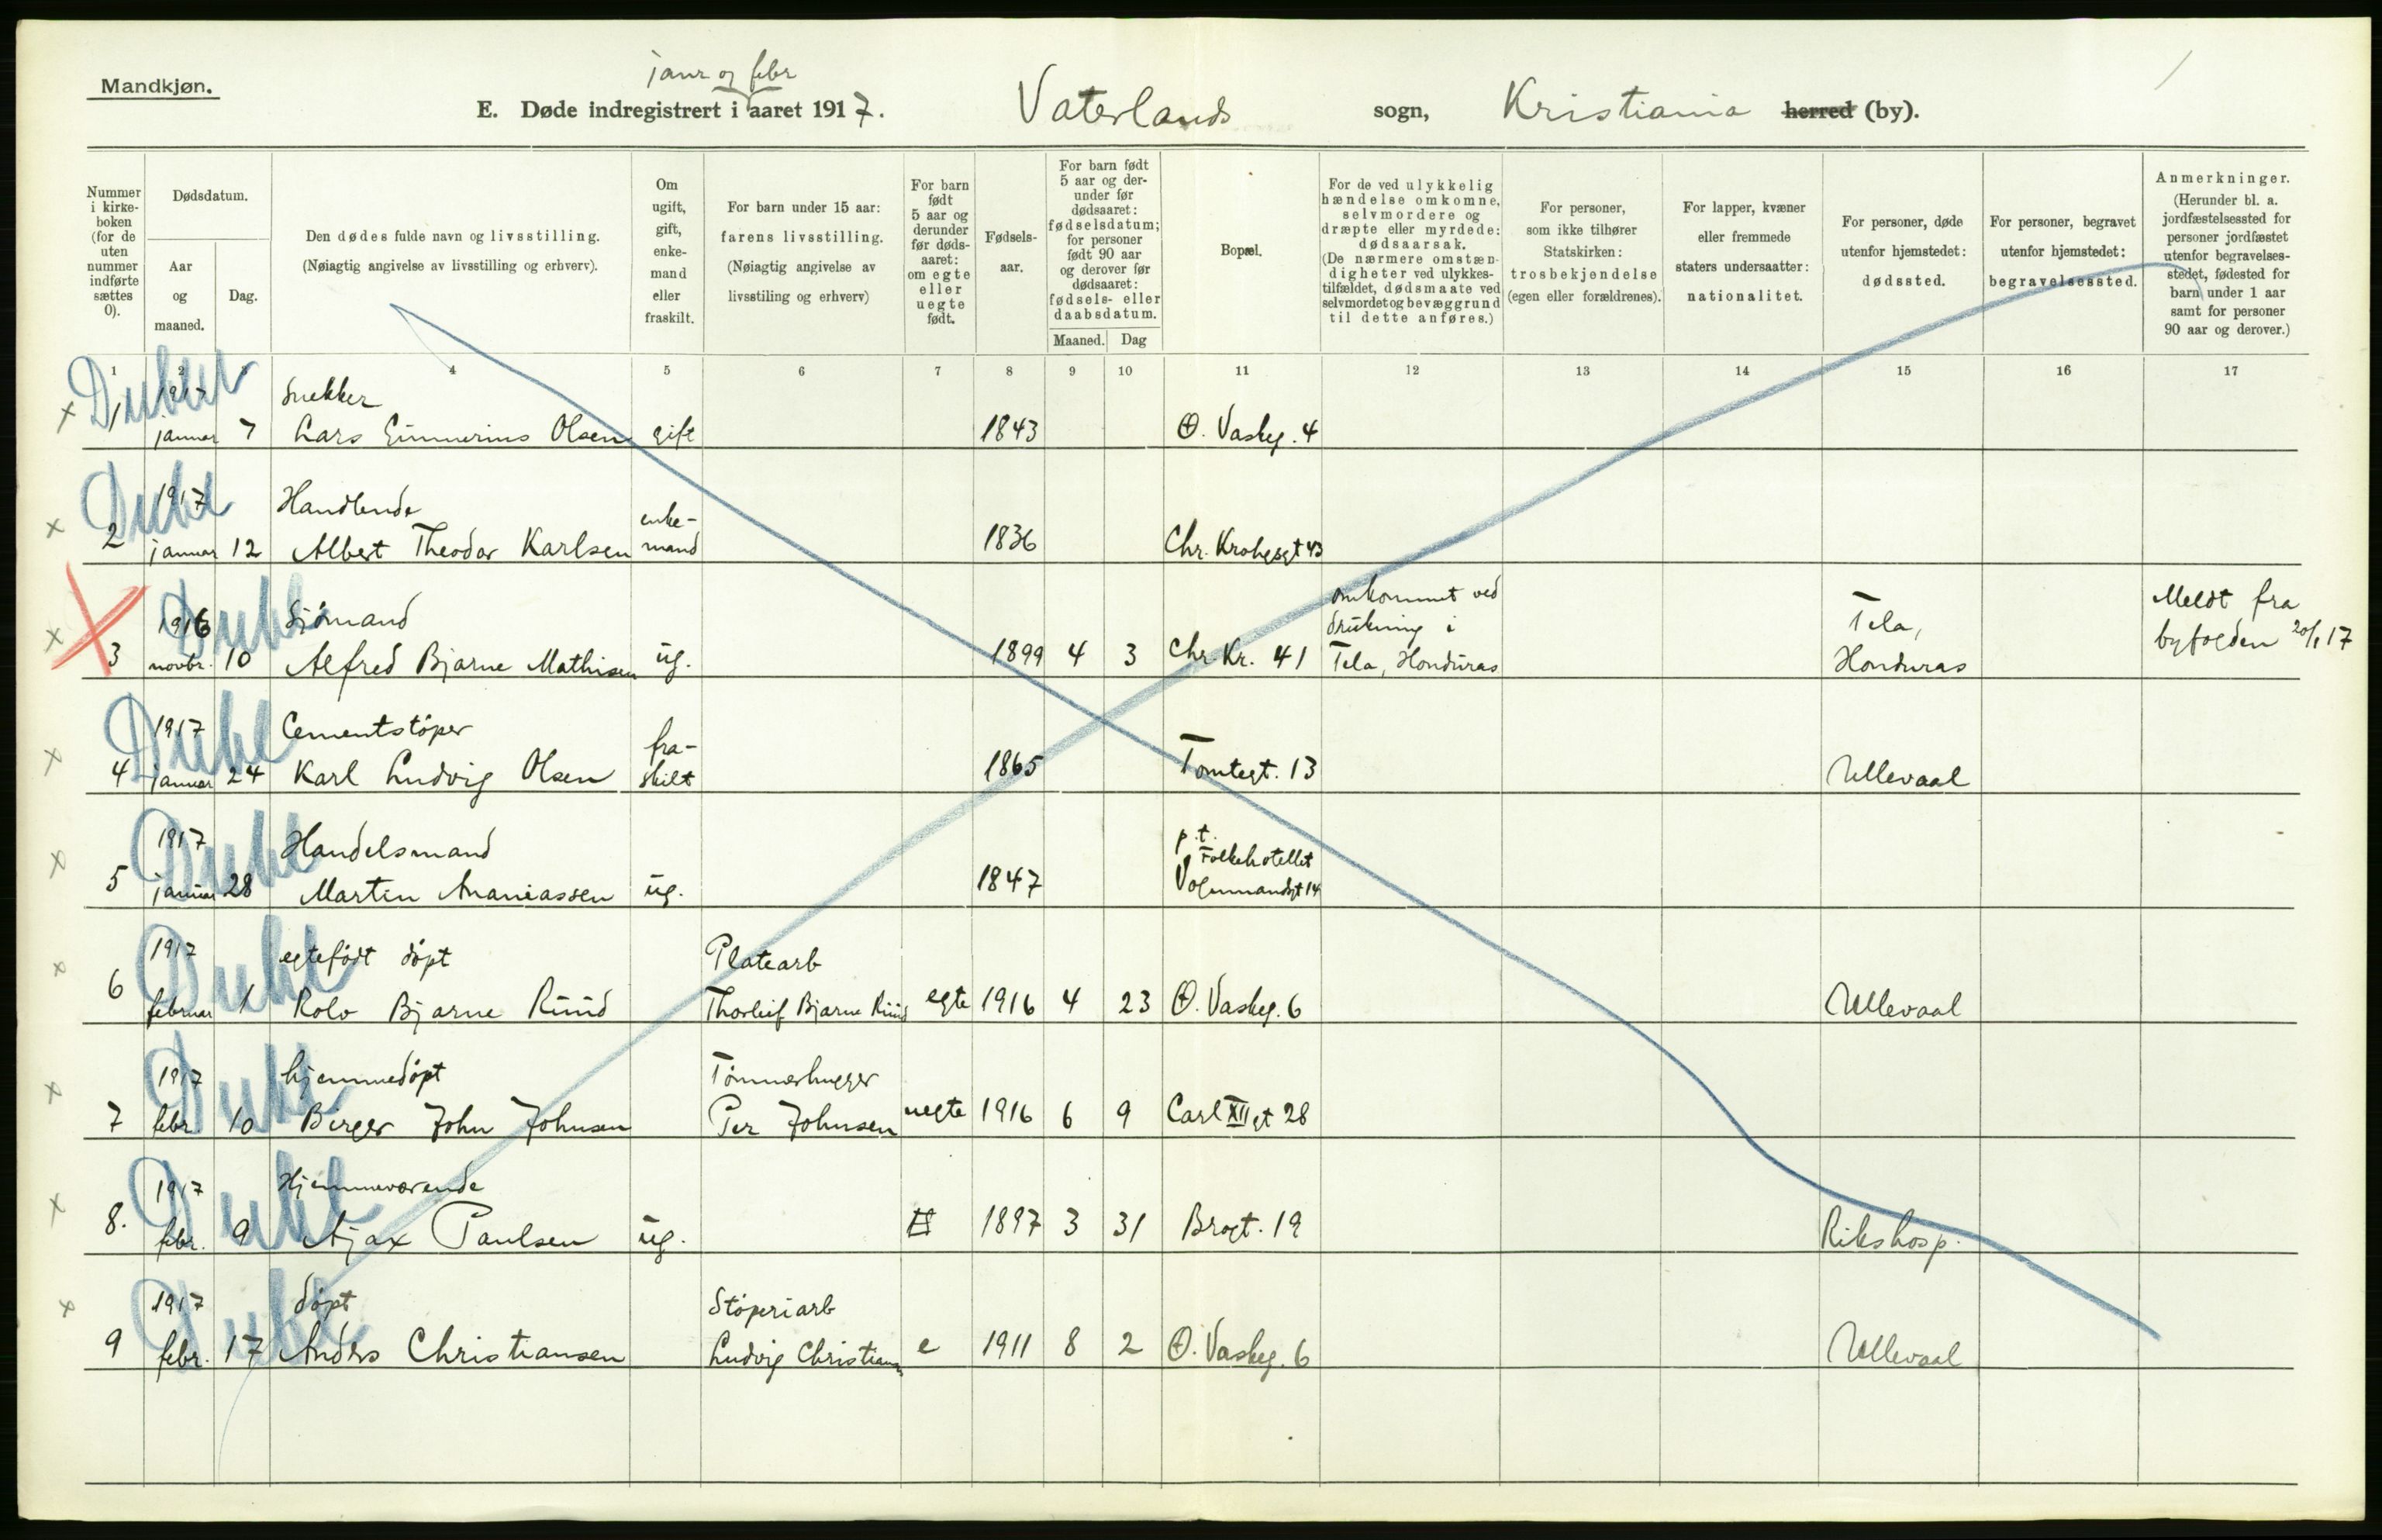 Mandkjøn.
janr og febr
E. Døde indregistrert i aaret 1917. Vaterlands sogn, Kristiania herred (by).
Nummer i kirkeboken (for de uten nummer indførte sættes 0).
Dødsdatum.
Aar og maaned.
Dag.
Den dødes fulde navn og livsstilling.
(Nøiagtig angivelse av livsstilling og erhverv).
Om ugift, gift, enkemand eller fraskilt.
For barn under 15 aar: farens livsstilling.
(Nøiagtig angivelse av livsstiling og erhverv)
For barn født 5 aar og derunder før dødsaaret: om egte eller uegte født.
Fødselsaar.
For barn født 5 aar og derunder før dødsaaret: fødselsdatum; for personer født 90 aar og derover før dødsaaret: fødsels- eller daabsdatum.
Maaned. Dag
Bopæl.
For de ved ulykkelig hændelse omkomne, selvmordere og dræpte eller myrdede: dødsaarsak.
(De nærmere omstændigheter ved ulykkestilfældet, dødsmaate ved selvmordet og bevæggrund til dette anføres.)
For personer, som ikke tilhører Statskirken: trosbekjendelse (egen eller forældrenes).
For lapper, kvæner eller fremmede staters undersaatter: nationalitet.
For personer, døde utenfor hjemstedet: dødssted.
For personer, begravet utenfor hjemstedet: begravelsessted.
Anmerkninger.
(Herunder bl. a. jordfæstelsessted for personer jordfæstet utenfor begravelsesstedet, fødested for barn under 1 aar samt for personer 90 aar og derover.)
1 2 3 4 5 6 7 8 9 10 11 12 13 14 15 16 17
1917 Snekker
1 januar 7 Lars Olsen gift 1843 Ø. Vaskeg. 4
1917 Handlende enke-
2 januar 12 Albert Theodor Karlsen mand 1836 Chr. Krohgsgt 43
1916 Sjømand omkommet ved drukning i Tela, Meldt fra
3 novbr. 10 Alfred Bjarne Mathisen ug. 1899 4 3 Chr. Kr. 41 Tela, Honduras Honduras byfogden 20/1 17
1917 Cementstøper fra-
4 januar 24 Karl Ludvig Olsen skilt 1865 Tomtegt. 13 Ullevaal
1917 Handelsmand p.t. Folkehotellet
5 januar 28 Martin Ananiassen ug. 1847 Vognmandsgt 14
1917 egtefødt døpt Platearb
6 februar 1 Rolv Bjarne Ruud Thorleif Bjarne Ruud egte 1916 4 23 Ø. Vaskeg. 6 Ullevaal
1917 hjemmedøpt Tømmerhugger
7 febr. 10 Birger John Johnsen Per Johnsen uegte 1916 6 9 Carl XII gt 28
1917 Hjemmeværende
8. febr. 9 Ajax Paulsen ug. 1897 3 31 Brogt. 19 Rikshosp.
1917 døpt Støperiarb
9 febr. 17 Anders Christiansen Ludvig Christiansen e 1911 8 2 Ø. Vaskeg. 6 Ullevaal